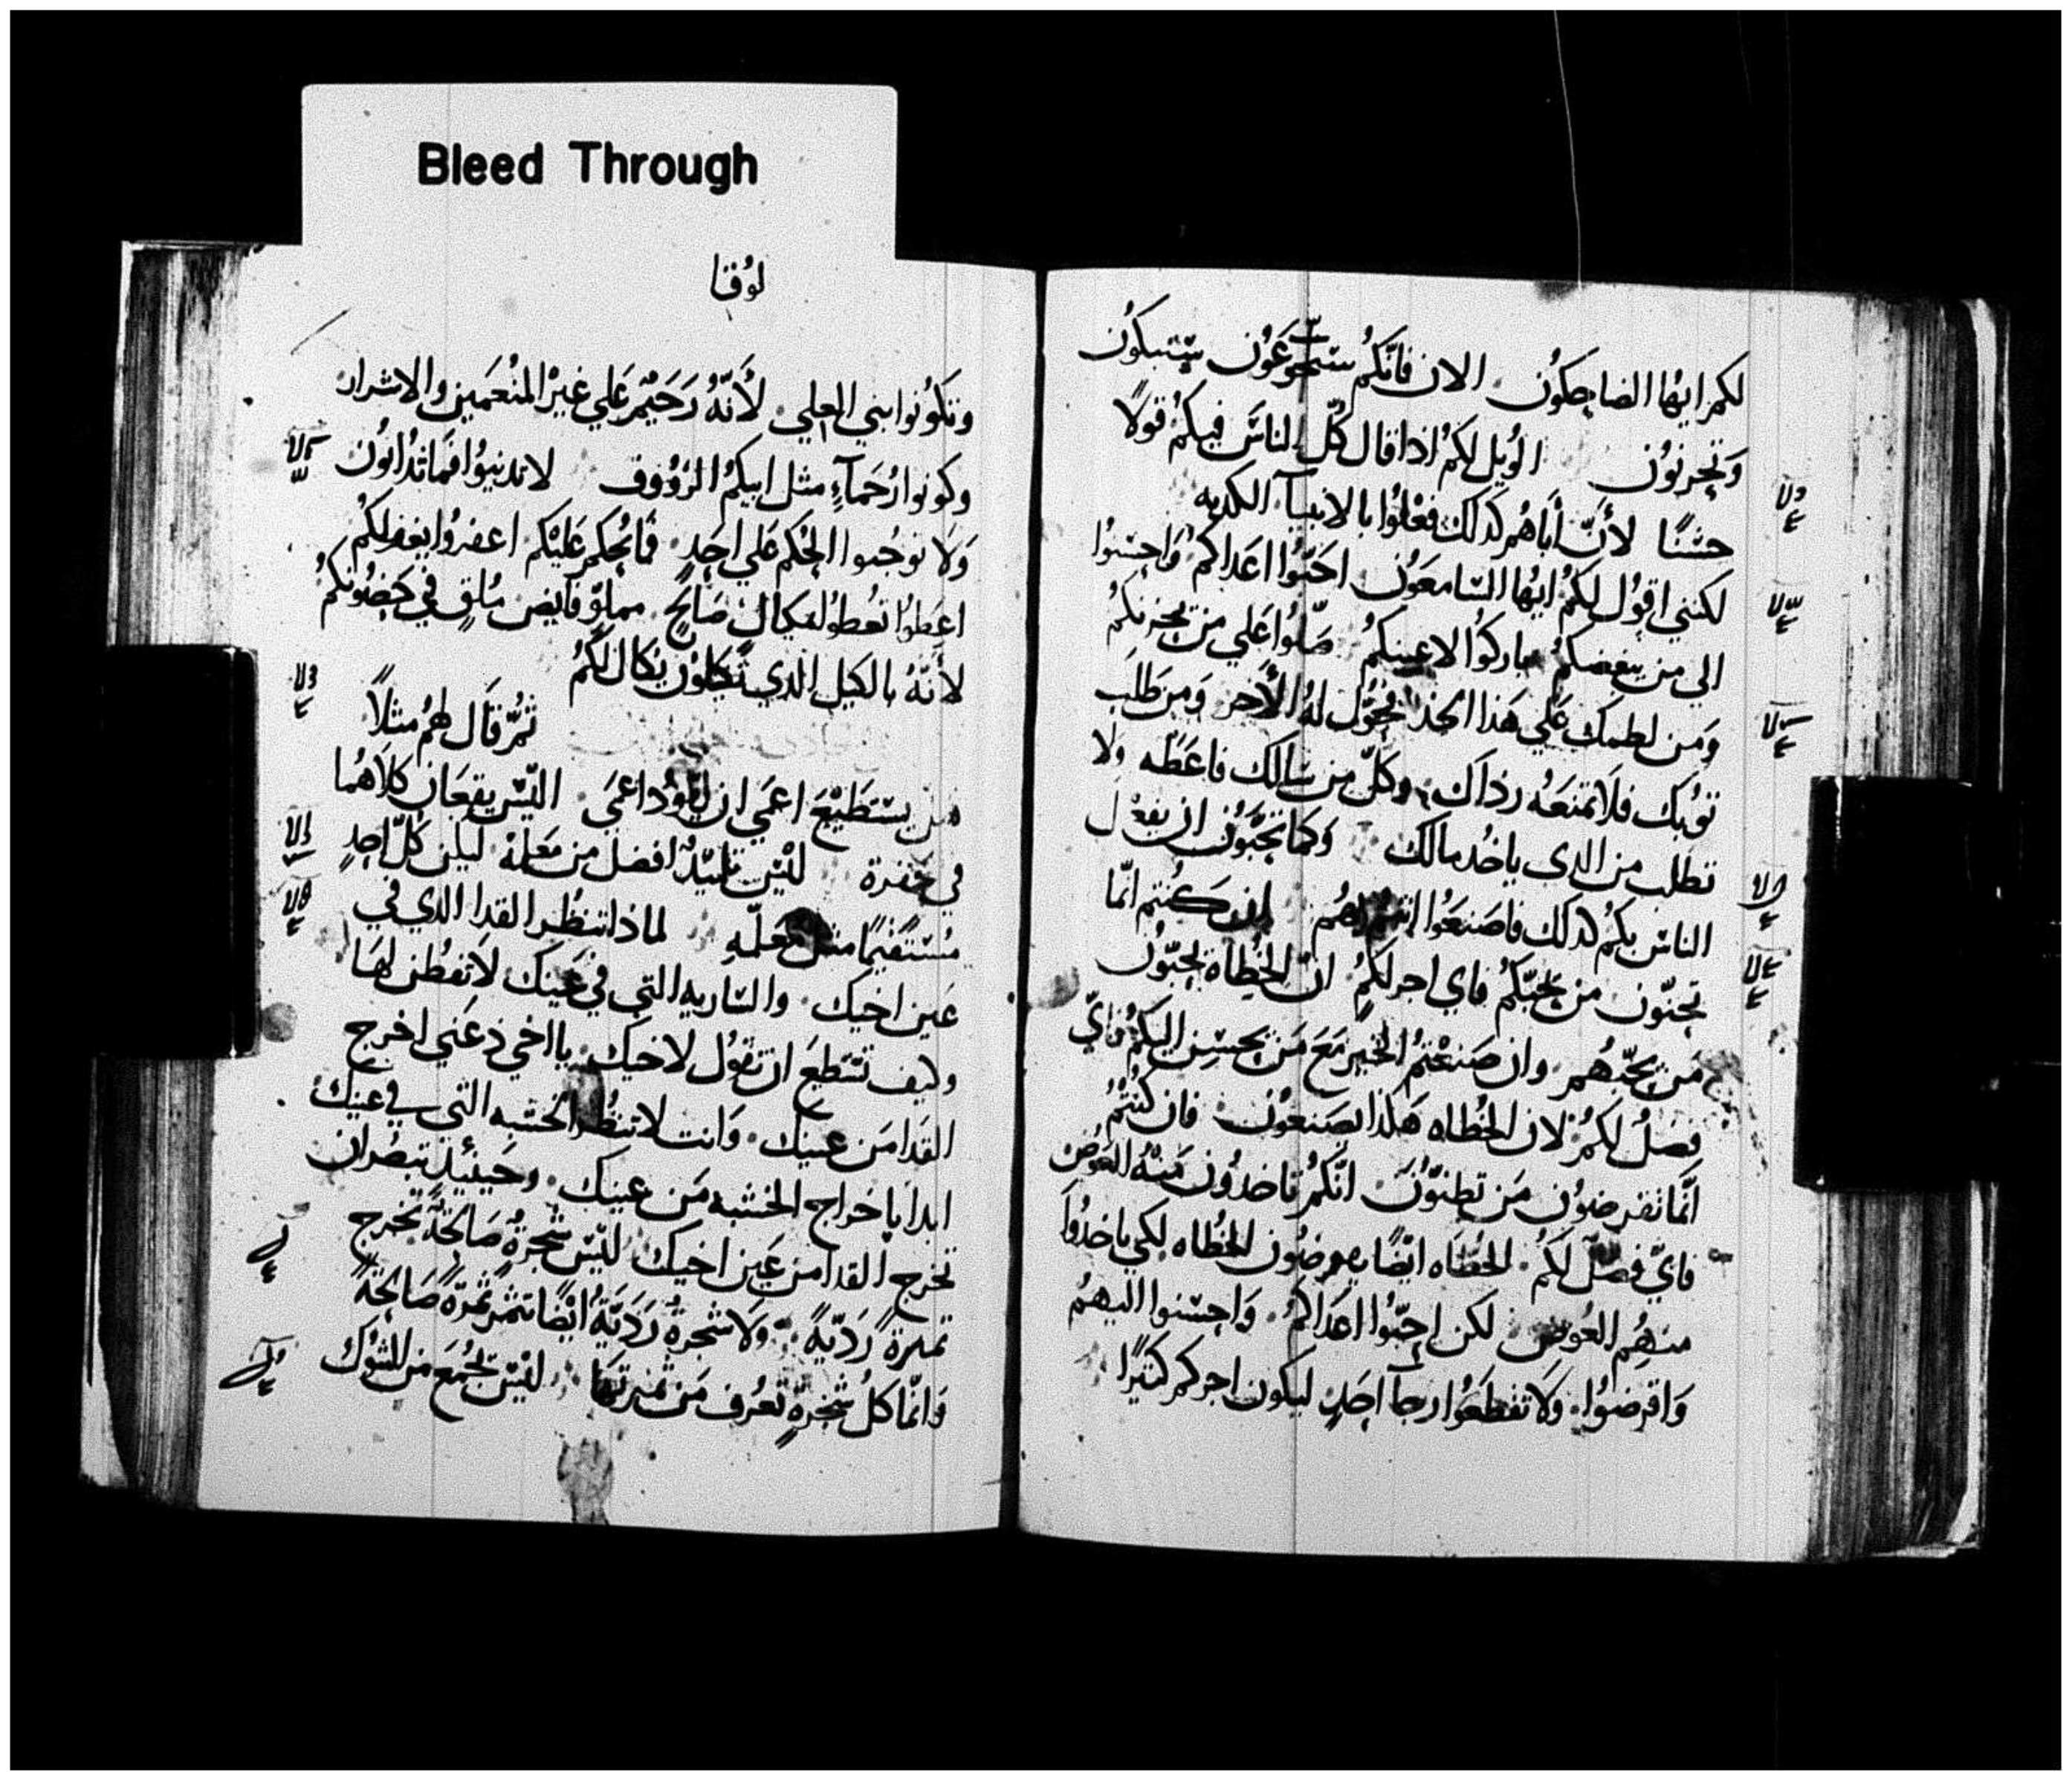 Bleed Through
لكم ايها الضاحكون الان فانكم ستجوعون ستبكون
وتحزنون الويل لكم اذا قال كل الناس فيكم قولاً
حسنًا لأن أباهم كدلك فعلوا بالانبيآ الكدبه
لكنني اقول لكم ايها السامعون احبّوا اعداكم واحسنوا
الي من يبغضكم باركوا لاعنيكم صلّوا علي من يحزنكم
ومن لطمك علي هذا الخد فحوّل له الأخر ومن طلب
توبك فلا تمنعه رداك وكلّ من سالك فاعطه ولا
تطلب من الدي ياخد مالك وكما تحبّون ان يفعل
الناس بكم كدلك فاصنعوا انتم بهم ان كنتم انمّا
تحبّون من يحبّكم فاي اجر لكم انّ الخطاة يحبّون
من يحبّهم وان صنعتم الخير مع من يحسن اليكم فايّ
فضلُ لكم لان الخطاه هكذا يصنعون فان كنتم
انمّا تقرضون من تظنّون انّكم تاخدون منه العوض
فايّ فضل لكم الخطاه ايضًا يقرضون الخطاه لكي ياخدوا
منهم العوض لكن احبّوا اعداكم واحسنوا اليهم
واقرضوا ولا تقطعوا رجآ احدٍ ليكون اجركم كثيرًا
لوقا
وتكونوا بني العلي لأنّه رحيم علي غير المنعمين والاشرار
وكونوا رحمآء مثل ابيكم الرؤوف لا تدينوا فما تدانون
ولا توجبوا الحكم علي احد فما يحكم عليكم اغفروا يغفر لكم
اعطوا تعطوا بمكيال صالح مملوّ فايض ملقٍ في حضونكم
لأنّه بالكيل الدي تكيلون يكال لكم
ثمّ قال لهم مثلاً
هل يستطيع اعمي ان يقود اعمي اليس يقعان كلاهما
في حفرة ليس تلميدٌ افضل من معلمة ليكن كلّ احدٍ
مستقيمًا مثل معلّمهِ لماذا تنظر القدا الدي في
عين اخيك والساريه التي في عينك لا تفطن لها
وكيف تستطيع ان تقول لاخيك يا اخي دعني اخرج
القدا من عينيك وانت لا تنظر الخشبه التي في عينيك
ابدا باخراج الخشبه من عينيك وحينيذ تبصر ان
تخرج القدا من عين اخيك ليس شجرةٌ صالحةً تخرج
ثمرةً رديّهً ولا شجرةٌ رديّةٌ ايضًا تثمر ثمرةً صالحةً
وانمّا كل شجرةٍ تعرف من ثمرتها ليس تجمع من الشوك